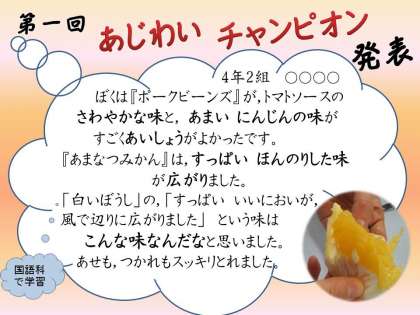 第一回
あじわい チャンピオン
発表
4年2組 ○○○○
ぼくは『ポークビーンズ』が,トマトソースの
さわやかな味と,あまい にんじんの味が
すごくあいしょうがよかったです。
『あまなつみかん』は,すっぱい ほんのりした味
が広がりました。
「白いぼうし」の,「すっぱい いいにおいが,
風で辺りに広がりました」 という味は
こんな味なんだなと思いました。
あせも,つかれもスッキリとれました。
国語科
で学習